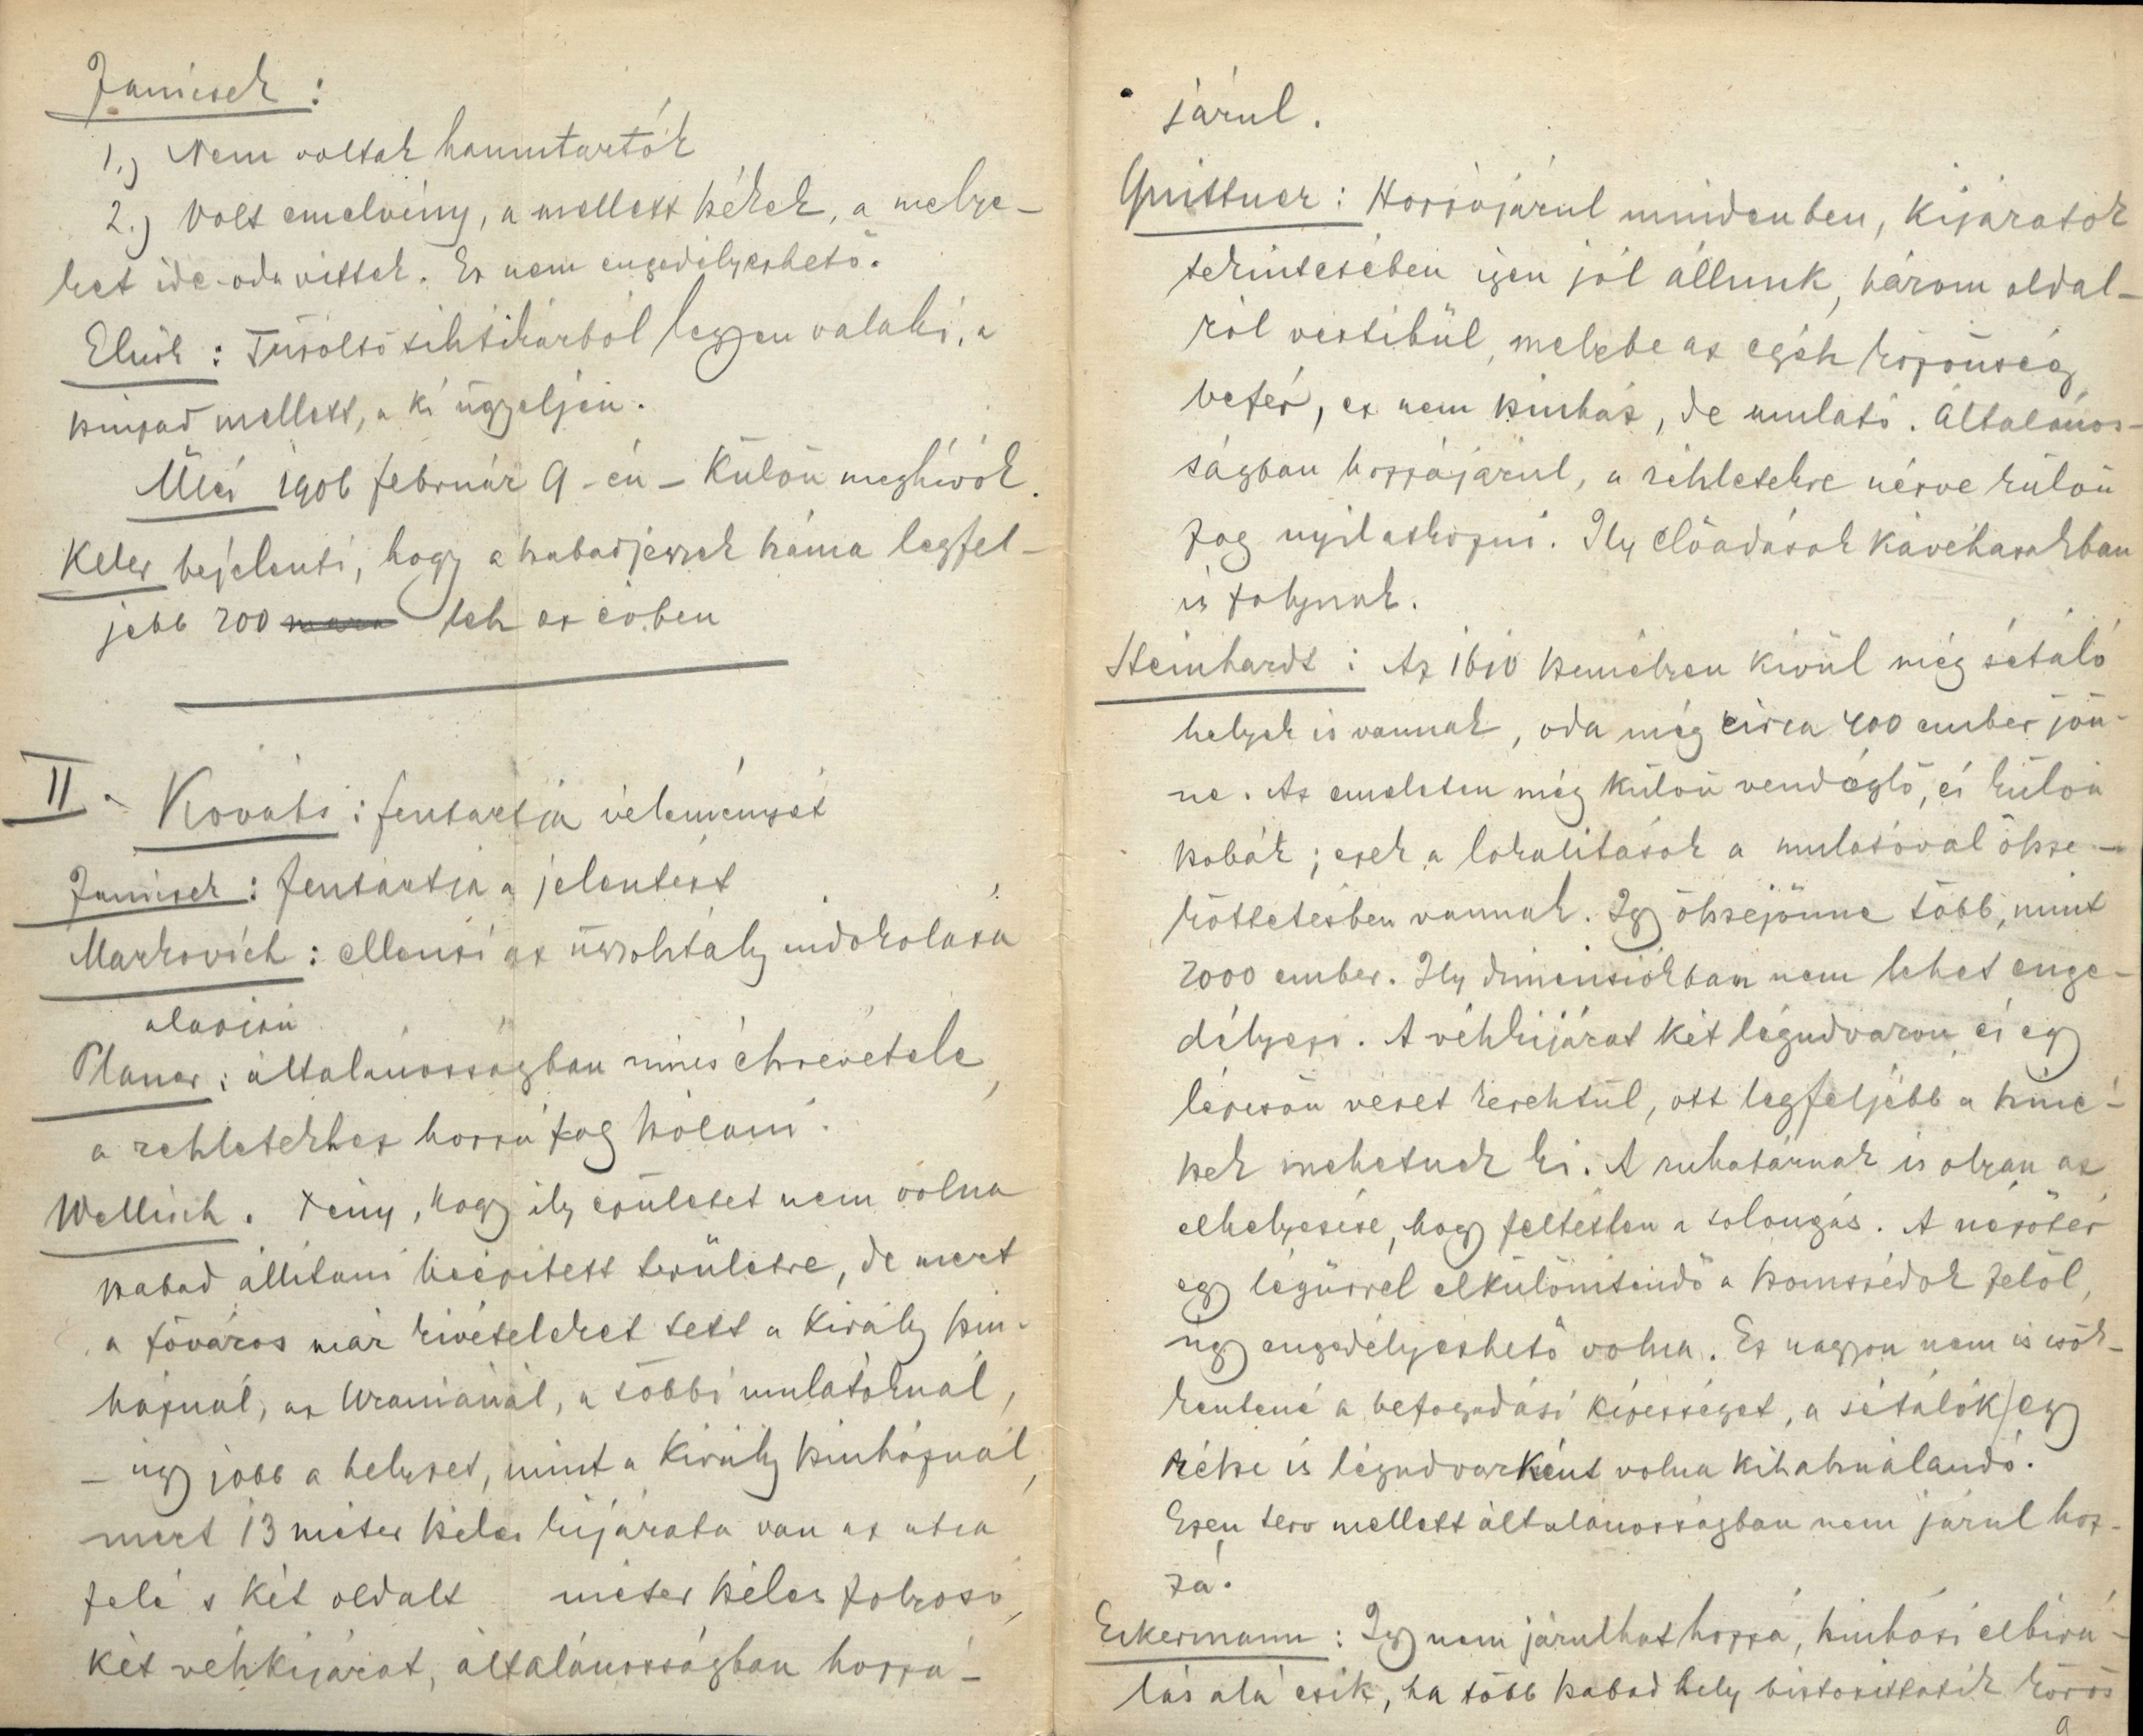 Janisek :
1.) Nem voltak hamutartók
2.) Volt emelvény, a mellett székek, a melye-
ket ide-oda vittek. Ez nem engedélyezhető.
Elnök : Tűzoltó tiktikárból legyen valaki, a
szinpad mellett, a ki ügyeljen.
Ülés 1906 február 9-én - Külön meghívók.
Keler bejelenti, hogy a szabadjegyek száma legfel-
jebb 200 lesz az évben
II - Kováts : fentartja véleményét
Janisek : fentartja a jelentést
Markovich : ellenzi az ügyosztály indokolása
alapján
Planer : általánosságban nincs észrevétele,
a részletekhez hozzá fog szólani.
Wellisch . Tény, hogy ily épületet nem volna
szabad állitani beépített területre, de mert
a főváros már kivételeket tett a Király szin-
háznál, az Urániánál, a többi mulatóknál,
- úgy jobb a helyzet, mint a Király szinháznál,
mert 13 méter széles kijárata van az utca
felé s két oldalt méter széles folyosó,
két vészkijárat, általánosságban hozzá-
járul.
Quittner : Hozzájárul mindenben, kijáratok
tekintetében igen jól állunk, három oldal-
ról vestibül, melybe az egész közönség
befér, ez nem szinház, de mulató. Általános-
ságban hozzájárul, a részletekre nézve külön
fog nyilatkozni. Ily előadások kávéházakban
is folynak.
Steinhardt : Az 1610 személyen kivül még sétáló
helyek is vannak, oda még circa 400 ember jön-
ne. Az emeleten még külön vendéglő, és külön
szobák ; ezek a lokalitások a mulatóval össze-
köttetésben vannak. Igy összejönne több, mint
2000 ember. Ily dimensiókban nem lehet enge-
délyezni. A vészkijárat két légudvaron és egy
lépcsőn vezet keresztül, ott legfeljebb a szine-
szek mehetnek ki. A ruhatárnak is olyan az
elhelyezése, hogy feltétlen a tolongás. A nézőtér
egy légűrrel elkülönitendő a szomszédok felől,
úgy engedélyezhető volna. Ez nagyon nem is csök-
kentené a befogadási képességet, a sétálók egy
része is légudvarként volna kihasználandó.
Ezen terv mellett általánosságban nem járul hoz-
zá.
Eckermann : Igy nem járulhat hozzá, szinházi elbirá-
lás alá esik, ha több szabad hely biztosittatik körös
a